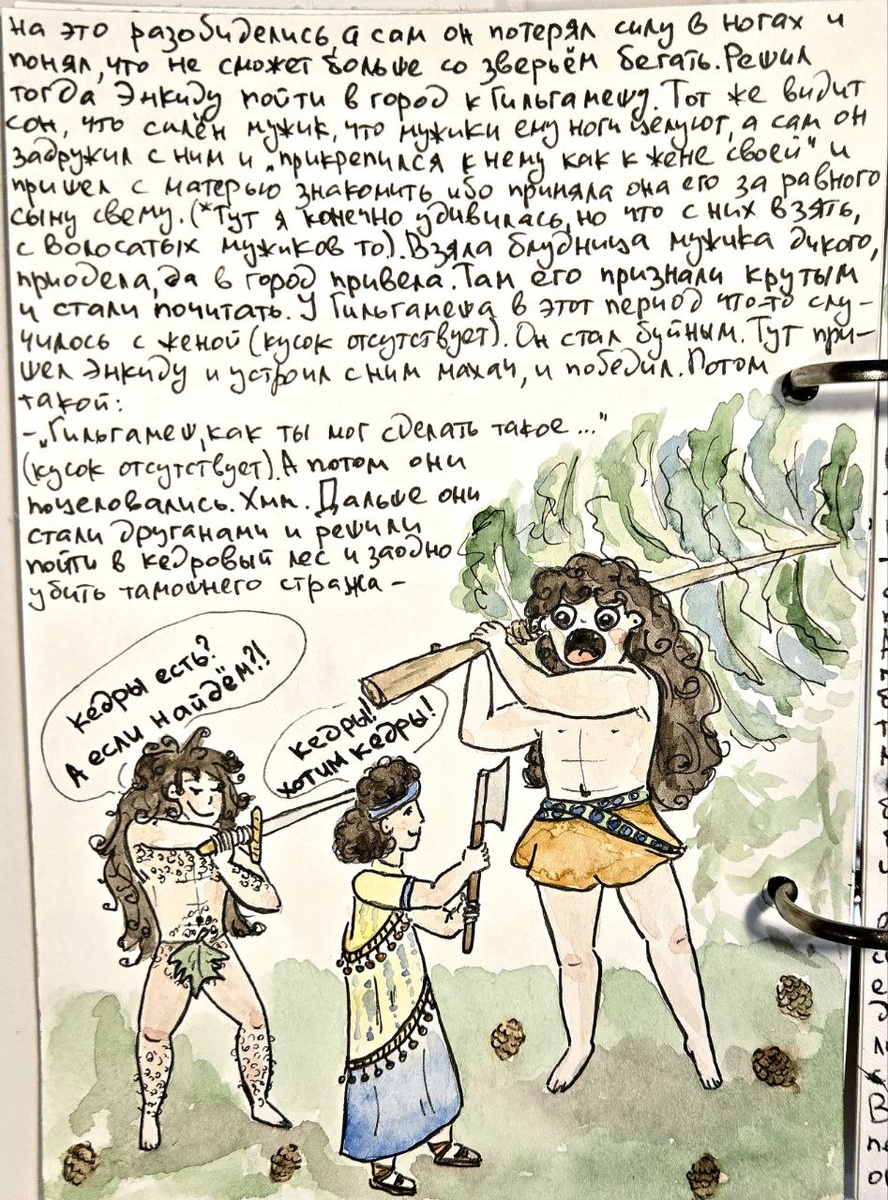 на это разобиделись, а сам он потерял силу в ногах и
понял, что не сможет больше со зверьём бегать. Решил
тогда Энкиду пойти в город к Гильгамешу. Тот же видит
сон, что силён мужик, что мужики ему ноги целуют, а сам он
задружил с ним и „прикрепился к нему как к жене своей" и
пришел с матерью знакомить ибо приняла она его за равного
сыну свему. (*Тут я конечно удивилась, но что с них взять,
с волосатых мужиков то). Взяла блудница мужика дикого,
приодела, да в город привела. Там его признали крутым
и стали почитать. У Гильгамеша в этот период что-то слу-
чилось с женой (кусок отсутствует). Он стал буйным. Тут при-
шел Энкиду и устроил с ним махач, и победил. Потом
такой:
- „Гильгамеш, как ты мог сделать такое ..."
(кусок отсутствует). А потом они
поцеловались. Хмм. Дальше они
стали друганами и решили
пойти в кедровый лес и заодно
убить тамошнего стража -
кедры есть?
А если найдём?!
кедры!
хотим кедры!